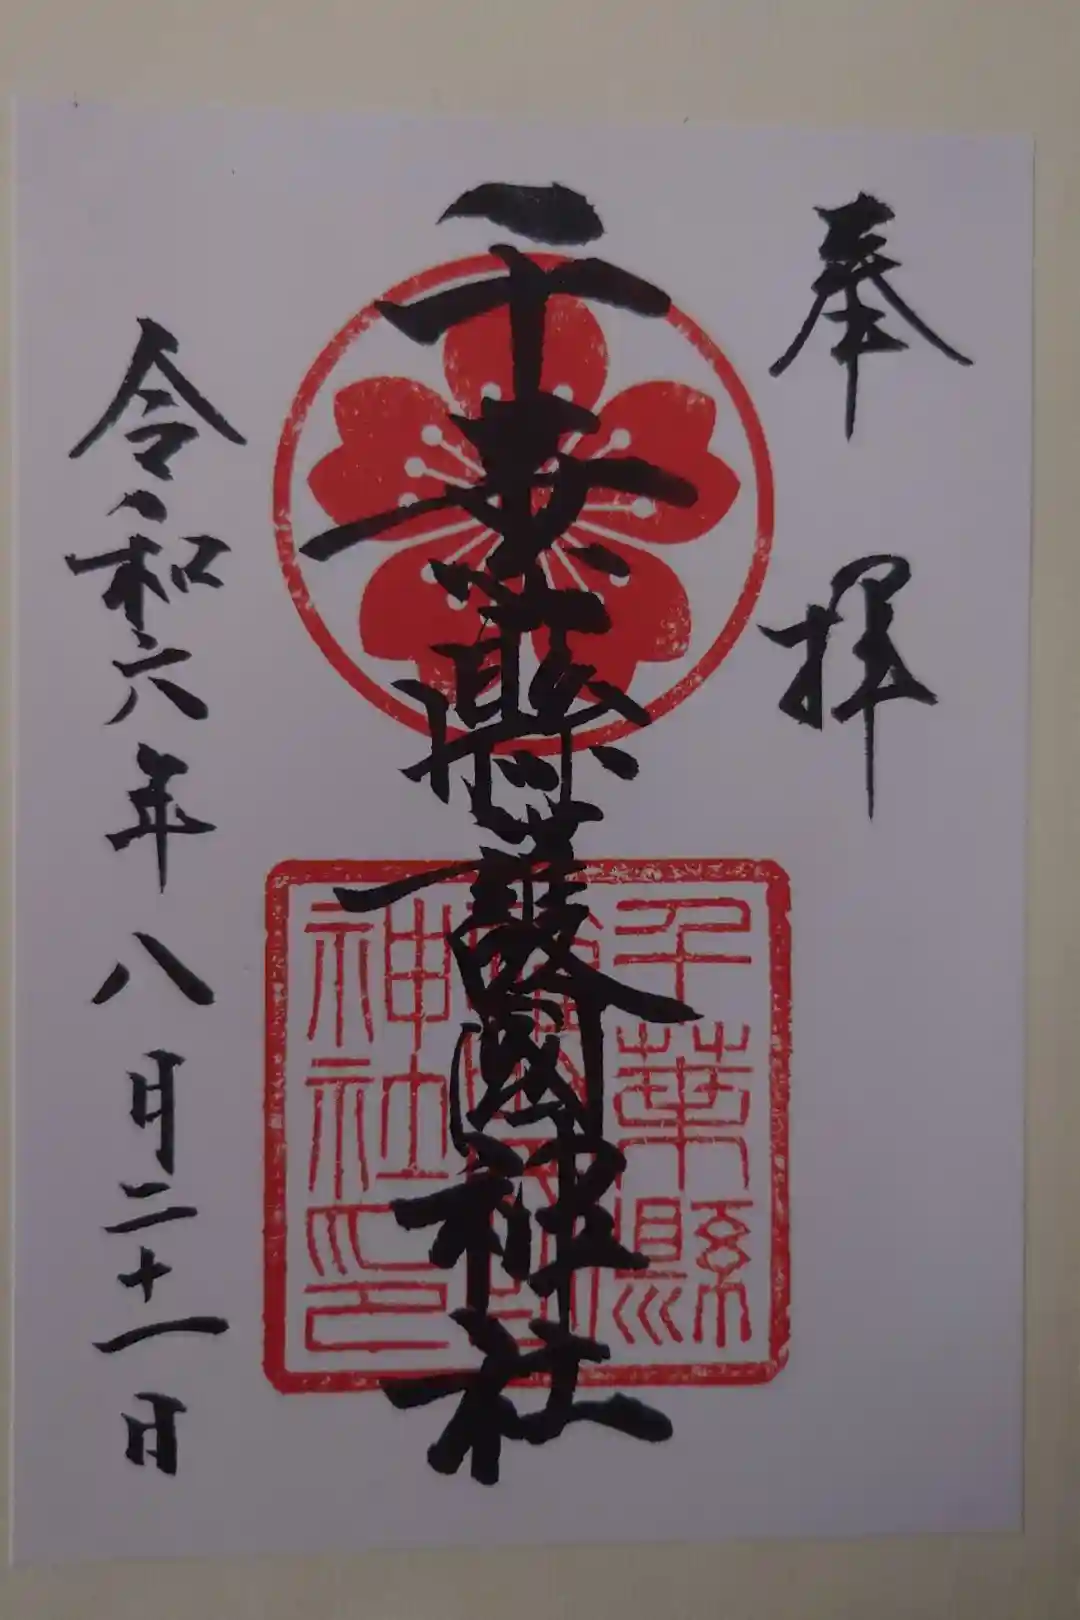 奉拝
千葉縣護國神社
千葉縣
護國
神社印
令和六年八月二十一日